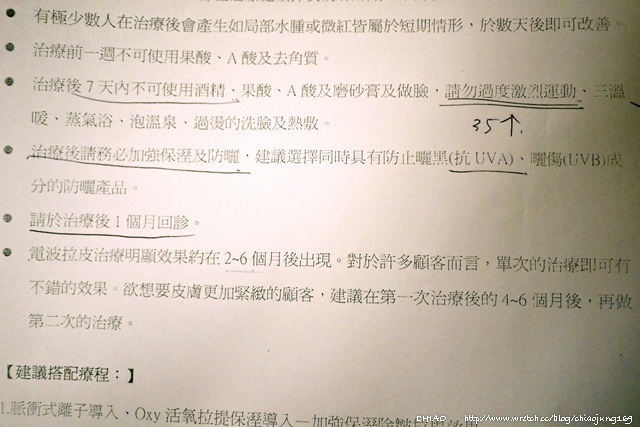 有極少數人在治療後會產生如局部水腫或微紅皆屬於短期情形，於數天後即可改善。
治療前一週不可使用果酸、A 酸及去角質。
治療後 7 天內不可使用酒精、果酸、A 酸及磨砂膏及做臉，請勿過度激烈運動、三溫
暖、蒸氣浴、泡溫泉、過燙的洗臉及熱敷。
35↑
治療後請務必加強保溼及防曬，建議選擇同時具有防止曬黑(抗 UVA)、曬傷(UVB)成
分的防曬產品。
請於治療後 1 個月回診。
電波拉皮治療明顯效果約在 2~6 個月後出現。對於許多顧客而言，單次的治療即可有
不錯的效果。欲想要皮膚更加緊緻的顧客，建議在第一次治療後的 4~6 個月後，再做
第二次的治療。
【建議搭配療程：】
1.脈衝式離子導入、Oxy 活氧拉提保溼導入－加強保溼除皺
CHIAO http://www.wretch.cc/blog/chiaojung169